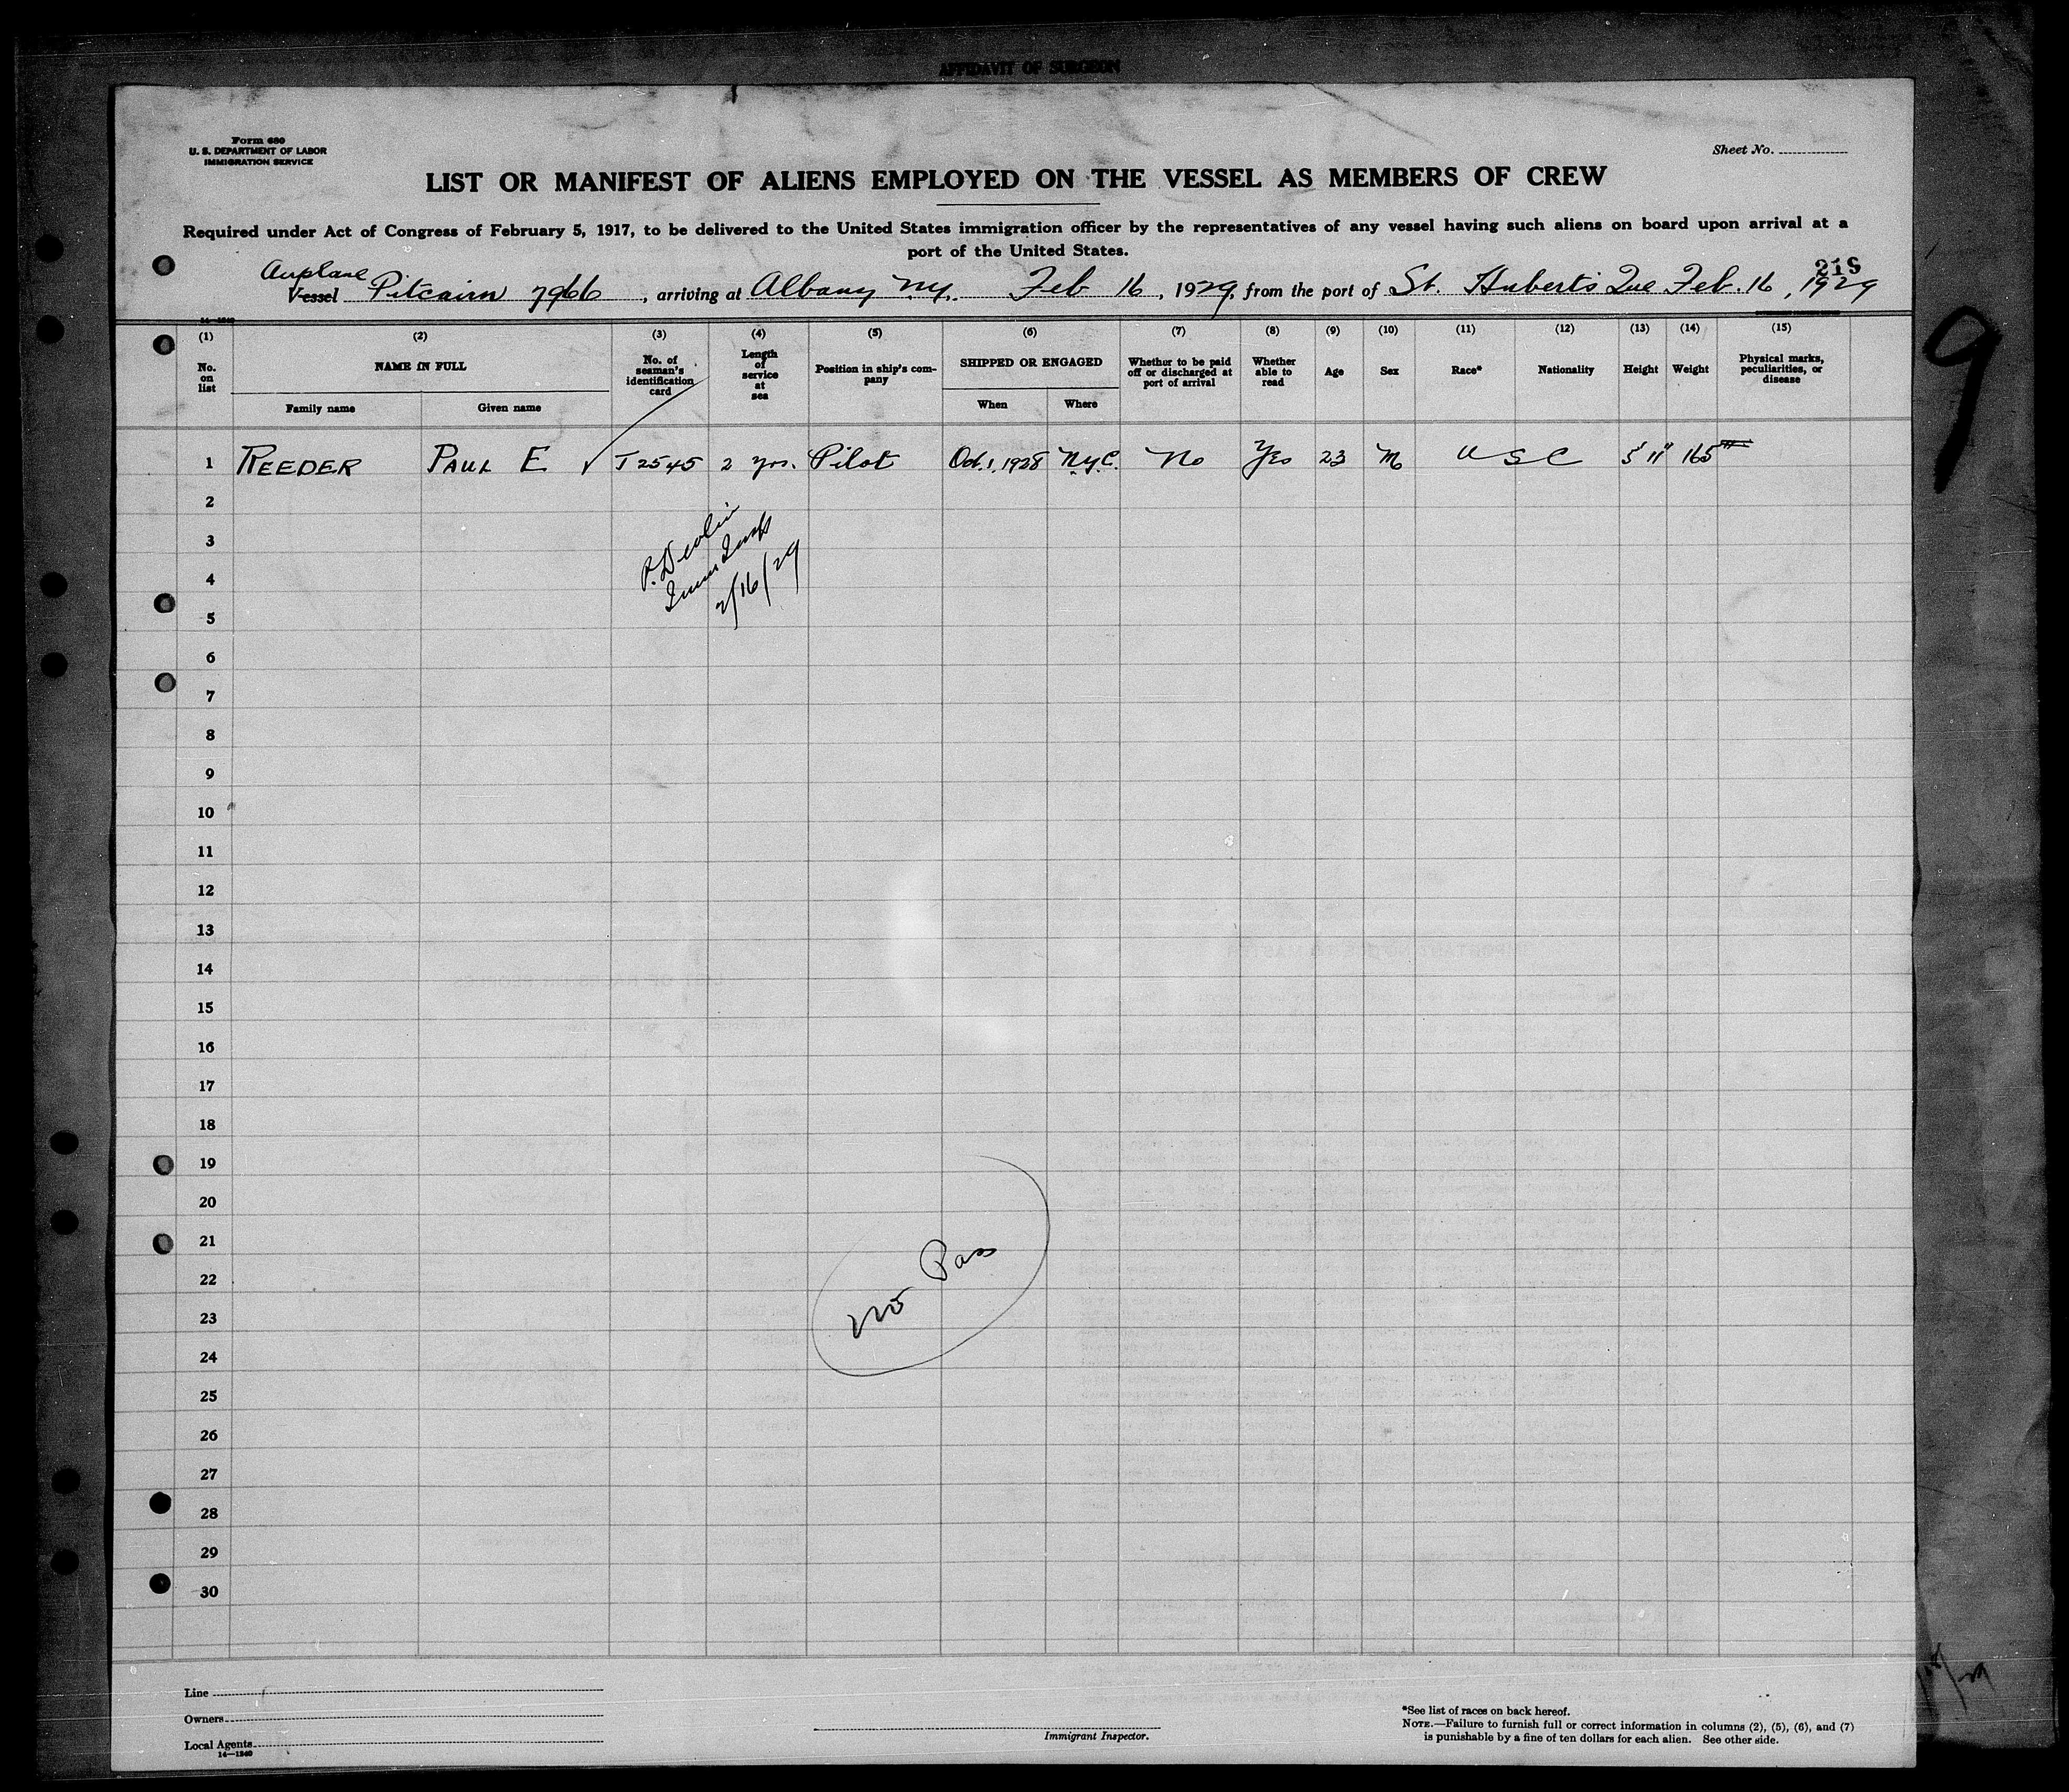 AFFIDAVIT OF SURGEON
Form 680
U. S. DEPARTMENT OF LABOR
IMMIGRATION SERVICE
Sheet No.
LIST OR MANIFEST OF ALIENS EMPLOYED ON THE VESSEL AS MEMBERS OF CREW
Required under Act of Congress of February 5, 1917, to be delivered to the United States immigration officer by the representatives of any vessel having such aliens on board upon arrival at a
port of the United States.
218
Airplane
Vessel Pitcairn 7966, arriving at Albany N.Y. Feb 16, 1929, from the port of St. Huberts Que Feb. 16, 1929
14—1240
(1) (2) (3) (4) (5) (6) (7) (8) (9) (10) (11) (12) (13) (14) (15)
No. on list
NAME IN FULL
Family name
Given name
No. of seaman's identification card
Length of service at sea
Position in ship's company
SHIPPED OR ENGAGED
When
Where
Whether to be paid off or discharged at port of arrival
Whether able to read
Age
Sex
Race*
Nationality
Height
Weight
Physical marks, peculiarities, or disease
1 REEDER PAUL E √ T2545 2 yrs. Pilot Oct. 1, 1928 N.Y.C. No Yes 23 M USC 5 11" 165
2
3
4
5
P. Devlin
Imm Insp
2/16/29
6
7
8
9
10
11
12
13
14
15
16
17
18
19
20
21
22
23
24
No Pass
25
26
27
28
29
30
9
Line
Owners
Local Agents
14—1240
Immigrant Inspector.
*See list of races on back hereof.
NOTE.—Failure to furnish full or correct information in columns (2), (5), (6), and (7)
is punishable by a fine of ten dollars for each alien. See other side.